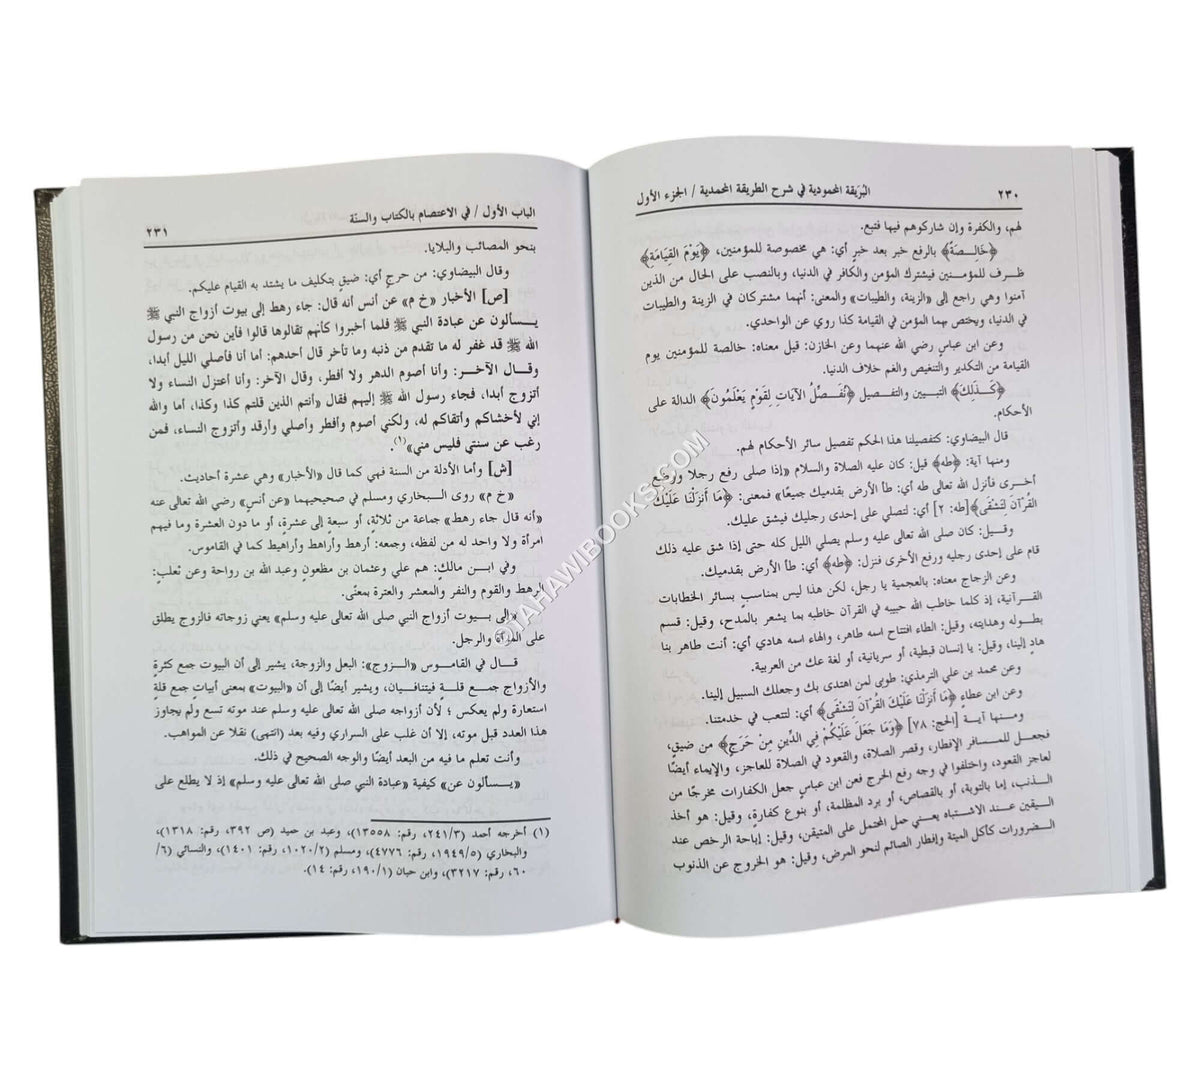 ٢٣٠ البريقة المحمودية في شرح الطريقة المحمدية / الجزء الأول
لهم، والكفرة وإن شاركوهم فيها فتبع.
﴿خَالِصَةً﴾ بالرفع خبر بعد خبرٍ أي: هي مخصوصة للمؤمنين، ﴿يَوْمَ القِيَامَةِ﴾
ظرف للمؤمنين فيشترك المؤمن والكافر في الدنيا، وبالنصب على الحال من الذين
آمنوا وهي راجع إلى «الزينة، والطيبات» والمعنى: أنهما مشتركان في الزينة والطيبات
في الدنيا، ويختص بهما المؤمن في القيامة كذا روي عن الواحدي.
وعن ابن عباسٍ رضي الله عنهما وعن الخازن: قيل معناه: خالصة للمؤمنين يوم
القيامة من التكدير والتنغيص والغم خلاف الدنيا.
﴿كَذَلِكَ﴾ التبيين والتفصيل ﴿نُفَصِّلُ الآيَاتِ لِقَوْمٍ يَعْلَمُونَ﴾ الدالة على
الأحكام.
قال البيضاوي: كتفصيلنا هذا الحكم تفصيل سائر الأحكام لهم.
ومنها آية: ﴿طه﴾ قيل: كان عليه الصلاة والسلام «إذا صلى رفع رجلا ووضع
أخرى فأنزل الله تعالى طه أي: طأ الأرض بقدميك جميعًا» فمعنى: ﴿مَا أَنزَلْنَا عَلَيْكَ
القُرْآنَ لِتَشْقَى﴾[طه: ٢] أي: لتصلي على إحدى رجليك فيشق عليك.
وقيل: كان صلى الله تعالى عليه وسلم يصلي الليل كله حتى إذا شق عليه ذلك
قام على إحدى رجليه ورفع الأخرى فنزل: ﴿طه﴾ أي: طأ الأرض بقدميك.
وعن الزجاج معناه: بالعجمية يا رجل، لكن هذا ليس بمناسبٍ بسائر الخطابات
القرآنية، إذ كلما خاطب الله حبيبه في القرآن خاطبه بما يشعر بالمدح، وقيل: قسم
بطوله وهدايته، وقيل: الطاء افتتاح اسمه طاهر، والهاء اسمه هادي أي: أنت طاهر بنا
هادٍ إلينا، وقيل: يا إنسان قبطية، أو سريانية، أو لغة عك من العربية.
وعن محمد بن علي الترمذي: طوبى لمن اهتدى بك وجعلك السبيل إلينا.
وعن ابن عطاءٍ ﴿مَا أَنزَلْنَا عَلَيْكَ القُرْآنَ لِتَشْقَى﴾ أي: لتتعب في خدمتنا.
ومنها آية [الحج: ٧٨] ﴿وَمَا جَعَلَ عَلَيْكُمْ فِي الدِّينِ مِنْ حَرَجٍ﴾ من ضيقٍ،
فجعل للمسافر الإفطار، وقصر الصلاة، والقعود في الصلاة للعاجز، والإيماء أيضًا
لعاجز القعود، واختلفوا في وجه رفع الحرج فعن ابن عباسٍ جعل الكفارات مخرجًا من
الذنب، إما بالتوبة، أو بالقصاص، أو برد المظلمة، أو بنوع كفارةٍ، وقيل: هو أخذ
اليقين عند الاشتباه يعني حمل المحتمل على المتيقن، وقيل: إباحة الرخص عند
الضرورات كأكل الميتة وإفطار الصائم لنحو المرض، وقيل: هو الخروج عن الذنوب
الباب الأول / في الاعتصام بالكتاب والسنة ٢٣١
بنحو المصائب والبلايا.
وقال البيضاوي: من حرجٍ أي: ضيقٍ بتكليف ما يشتد به القيام عليكم.
[ص] الأخبار «خ م» عن أنس أنه قال: جاء رهط إلى بيوت أزواج النبي ﷺ
يسألون عن عبادة النبي ﷺ فلما أخبروا كأنهم تقالوها قالوا فأين نحن من رسول
الله ﷺ قد غفر له ما تقدم من ذنبه وما تأخر قال أحدهم: أما أنا فأصلي الليل أبدا،
وقال الآخر: وأنا أصوم الدهر ولا أفطر، وقال الآخر: وأنا أعتزل النساء ولا
أتزوج أبدا، فجاء رسول الله ﷺ إليهم فقال «أنتم الذين قلتم كذا وكذا، أما والله
إني لأخشاكم وأتقاكم له، ولكني أصوم وأفطر وأصلي وأرقد وأتزوج النساء، فمن
رغب عن سنتي فليس مني»(١).
[ش] وأما الأدلة من السنة فهي كما قال «الأخبار» وهي عشرة أحاديث.
«خ م» روى البخاري ومسلم في صحيحيهما «عن أنسٍ» رضي الله تعالى عنه
«أنه قال جاء رهط» جماعة من ثلاثةٍ، أو سبعة إلى عشرةٍ، أو ما دون العشرة وما فيهم
امرأة ولا واحد له من لفظه، وجمعه: أرهط وأراهط وأراهيط كما في القاموس.
وفي ابن مالكٍ: هم علي وعثمان بن مظعونٍ وعبد الله بن رواحة وعن ثعلبٍ:
الرهط والقوم والنفر والمعشر والعترة بمعنًى.
«إلى بيوت أزواج النبي صلى الله تعالى عليه وسلم» يعني زوجاته فالزوج يطلق
على المرأة والرجل.
قال في القاموس «الزوج»: البعل والزوجة، يشير إلى أن البيوت جمع كثرةٍ
والأزواج جمع قلةٍ فيتنافيان، ويشير أيضًا إلى أن «البيوت» بمعنى أبيات جمع قلةٍ
استعارة ولم يعكس؛ لأن أزواجه صلى الله تعالى عليه وسلم عند موته تسع ولم يجاوز
هذا العدد قبل موته، إلا أن غلب على السراري وفيه بعد (انتهى) نقلا عن المواهب.
وأنت تعلم ما فيه من البعد أيضًا والوجه الصحيح في ذلك.
«يسألون عن» كيفية «عبادة النبي صلى الله تعالى عليه وسلم» إذ لا يطلع على
(١) أخرجه أحمد (٢٤١/٣، رقم: ١٣٥٥٨)، وعبد بن حميد (ص ٣٩٢، رقم: ١٣١٨)،
والبخاري (١٩٤٩/٥، رقم: ٤٧٧٦)، ومسلم (١٠٢٠/٢، رقم: ١٤٠١)، والنسائي (٦/
٦٠، رقم: ٣٢١٧)، وابن حبان (١٩٠/١، رقم: ١٤).
TAHAWIBOOKS.COM